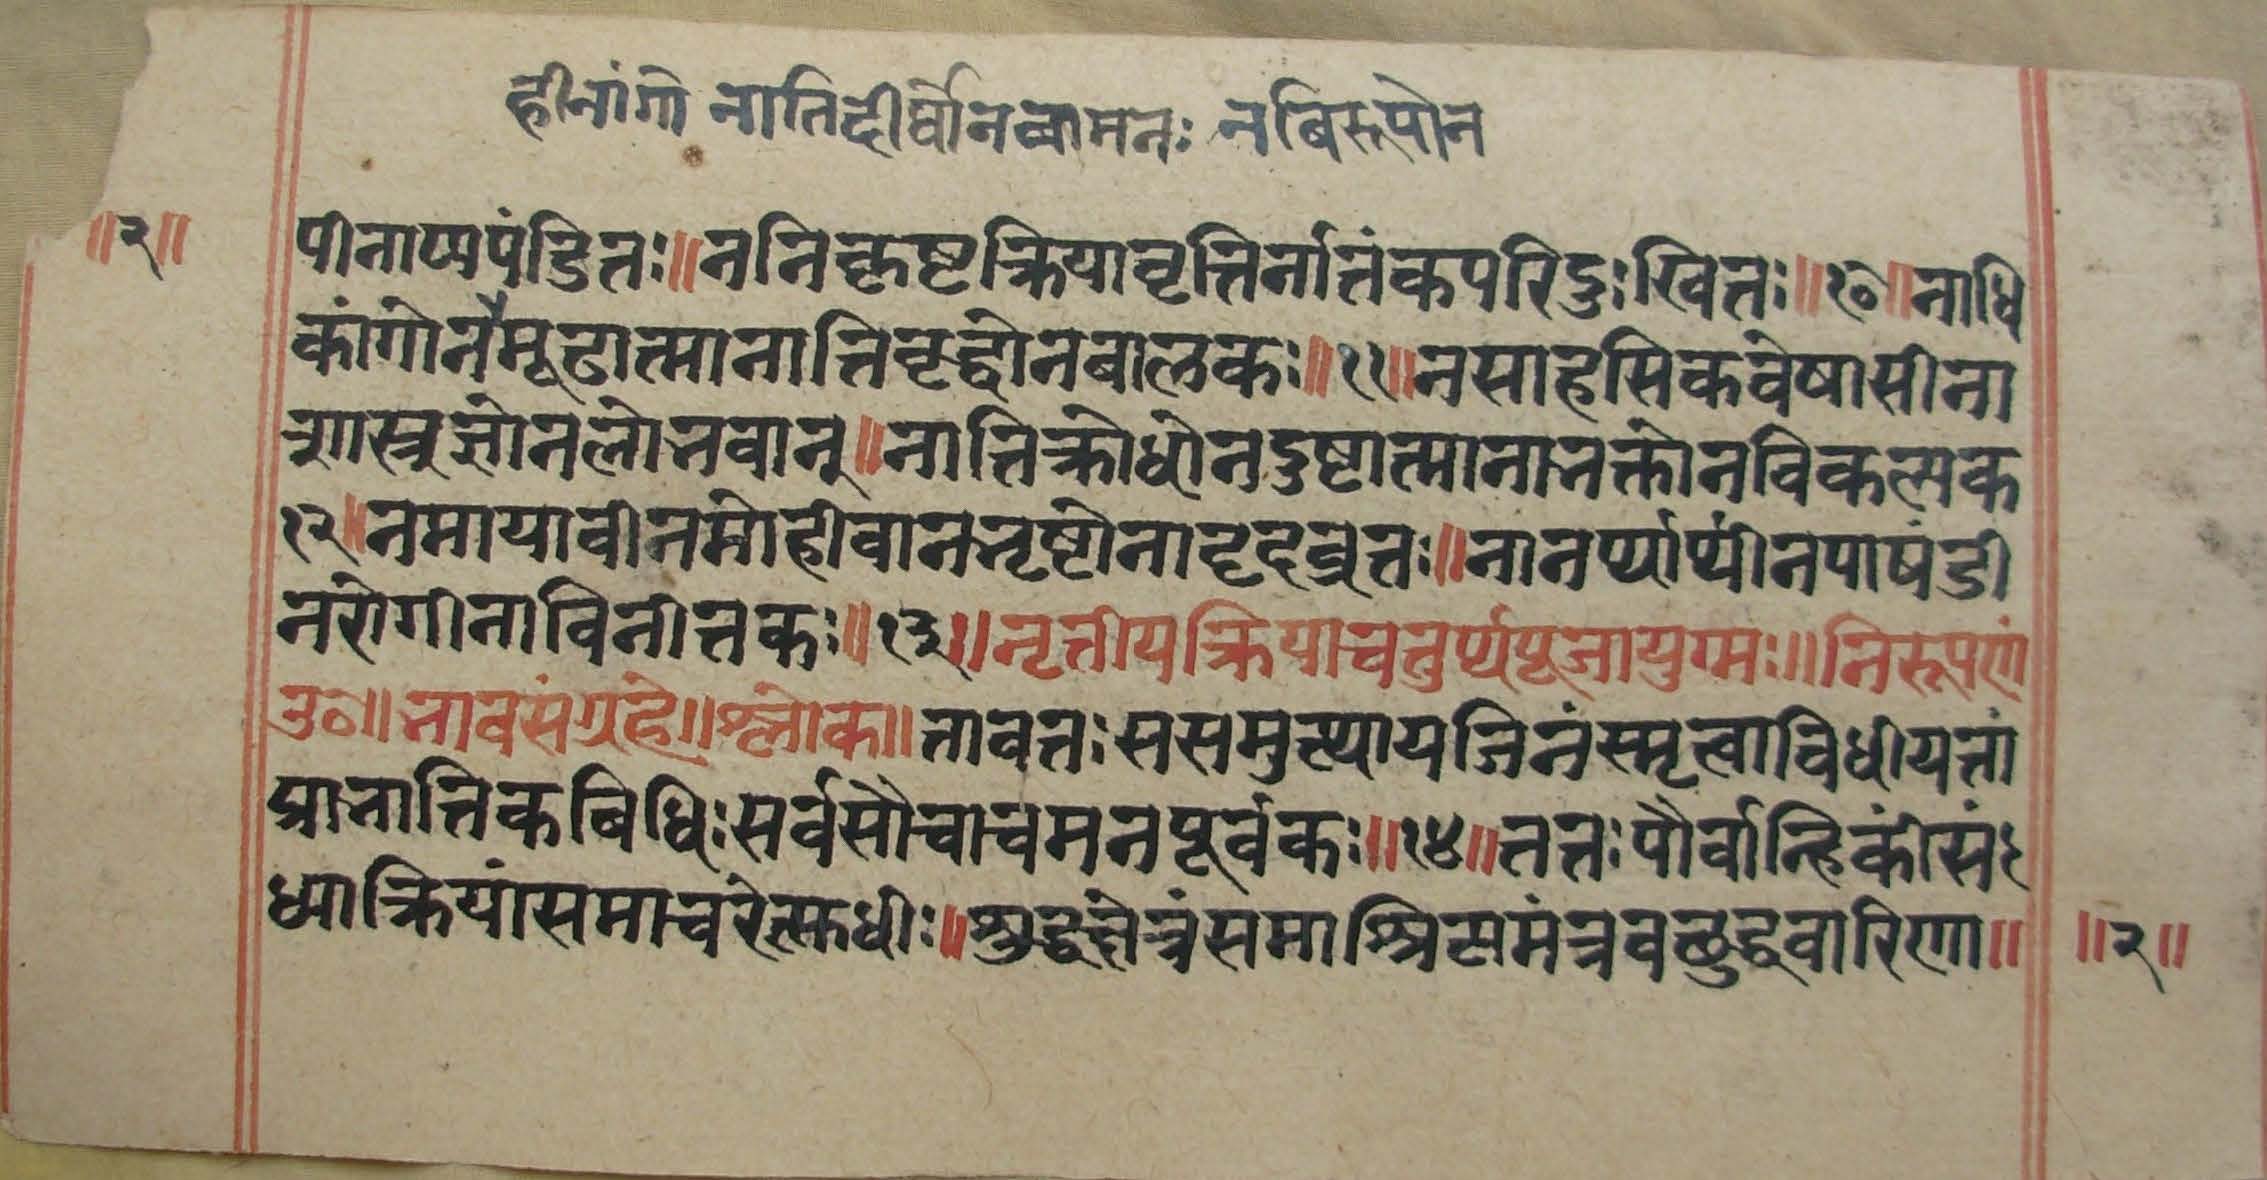 हीनांगो नातिदीर्घोनवामनः नबिरूपोन
॥२॥ पीनाप्यपंडितः॥ननिकृष्टक्रियावृत्तिर्नातंकपरिदुःखितः॥१०॥नाधि
कांगोनैमूढात्मानातिवृद्धोनबालकः॥११॥नसाहसिकवेषासीना
शास्त्रज्ञोनलोभवान्॥नातिक्रोधोनदुष्टात्मानाभक्तोनविकल्पक
१२॥नमायावीनमोहीवानभृष्टोनादृढव्रतः॥नानर्थ्यार्थीनपाषंडी
नरोगीनाविनीतकः॥१३॥तृतीयक्रियाचतुर्थपूजायुग्मः॥निरूपणं
उ०॥भावसंग्रहे॥श्लोक॥तावतःससमुत्थायजिनंस्मृत्वाविधीयतां
प्राभातिकबिधिःसर्वसौचाचमनपूर्वकः॥१४॥ततःपौर्वान्हिकींसं
ध्याक्रियांसमाचरेत्सुधीः॥शुद्धक्षेत्रंसमाश्रित्यमंत्रवछुद्धवारिणा॥ ॥२॥